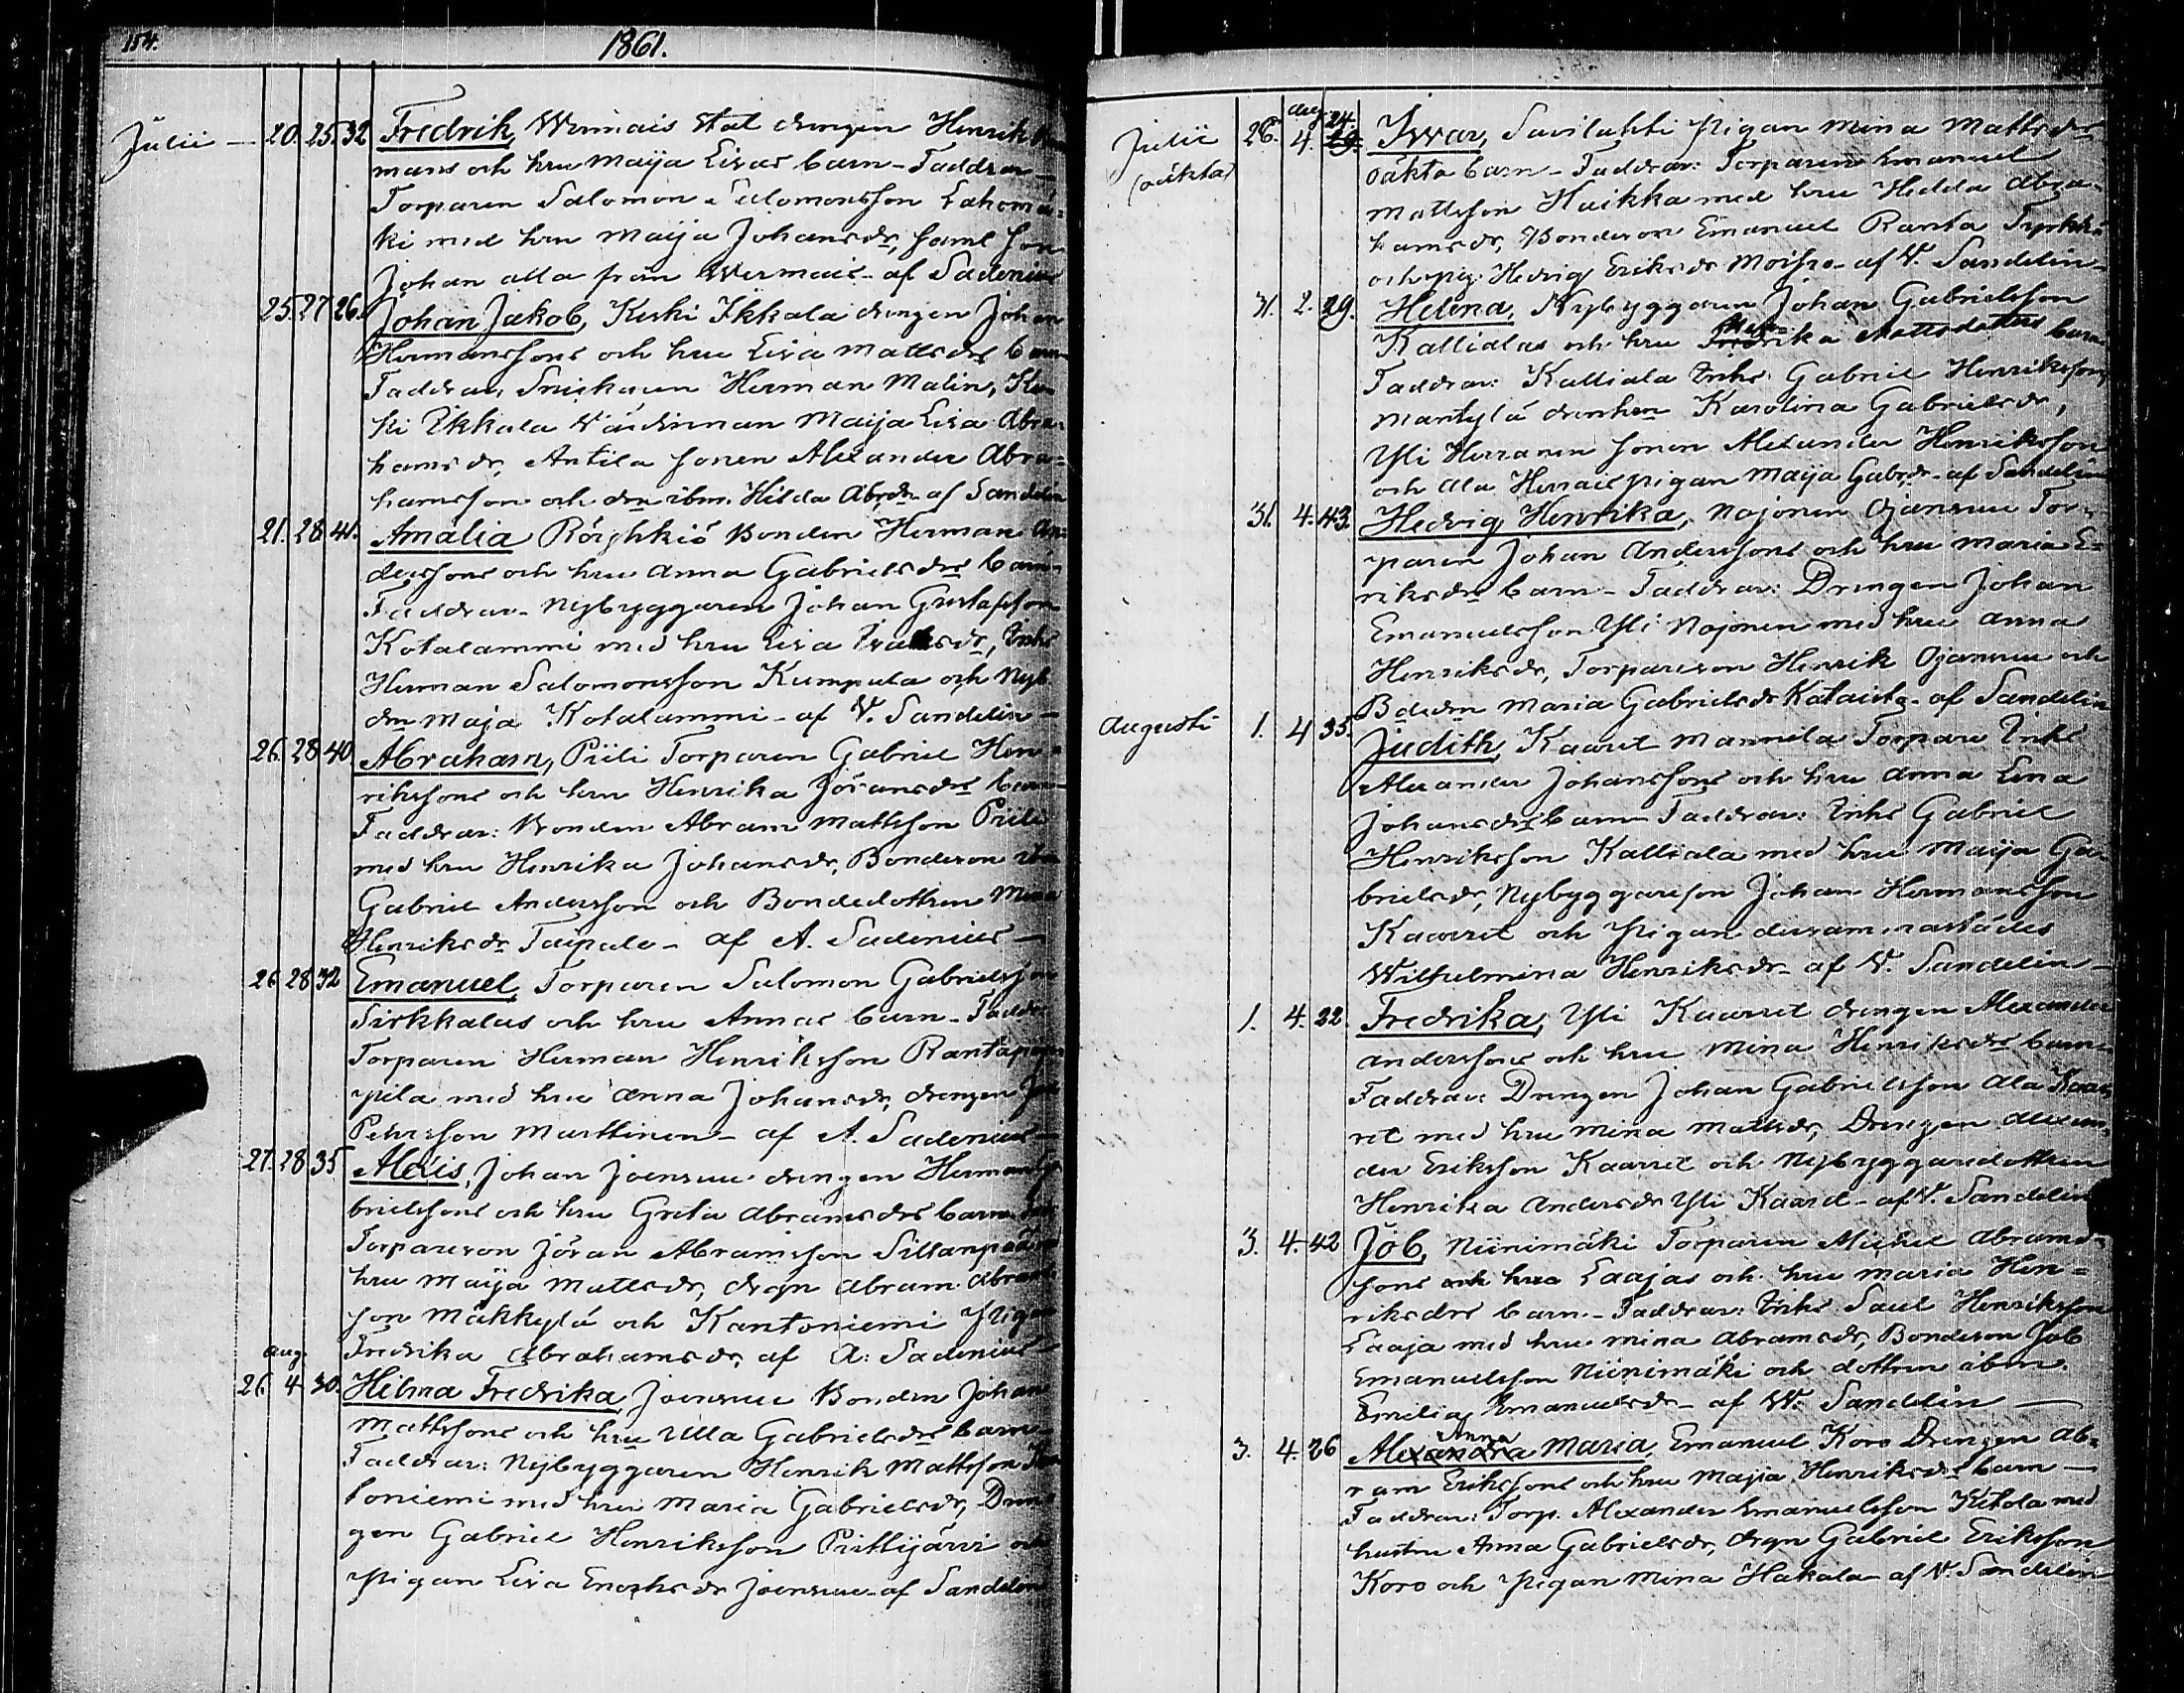 154.
1861.
Julii — 20. 25. 32 Fredrik, Wermais Stat drengen Henrik
mans och hru Maija Lisas barn - Faddrar -
Torparen Salomon Salomonsson Lahomä=
ki med hru Maija Johansdr, samt son
Johan alla från Wermais - af Sadenius
25. 27 26. Johan Jakob, Keski Ikkala drengen Johan
Hermanssons och hru Lisa Mattsdrs barn
Faddrar, Snickaren Herman Malin, Kes=
ki Ikkala Värdinnan Maija Lisa Abra=
hamsdr, Antila sonen Alexander Abra=
hamsson och drn ibm. Hilda Abrdr af Sandelin
21. 28. 41. Amalia Röyhkiö Bonden Herman An=
derssons och hru Anna Gabrielsdrs barn
Faddrar - Nybyggaren Johan Gustafsson
Kotalammi med hru Lisa Isaksdr, Enkl
Herman Salomonsson Kumpula och Nyb
drn Maja Kotalammi - af V. Sandelin —
26. 28 40. Abraham, Piili Torparen Gabriel Hen=
rikssons och hru Henrika Jöransdrs barn
Faddrar: Bonden Abram Mattsson Piili
med hru Henrika Johansdr, Bondeson ibm
Gabriel Andersson och Bondedottren Mina
Henriksdr Taipale - af A. Sadenius —
26 28 32 Emanuel, Torparen Salomon Gabrielsson
Sirkkalas och hru Annas barn - Faddr
Torparen Herman Henriksson Rantapo
pila med hru Anna Johansdr, drengen
Petersson Marttinen - af A. Sadenius —
27. 28 35. Alexis, Johan Joensuu drengen Herman Ga
brielssons och hru Greta Abramsdrs barn
Torpareson Jöran Abramsson Sillanpää
hru Maija Mattsdr, drgn Abram Abram
son Mäkkylä och Kantoniemi Pigan
Fredrika Abrahamsdr, af A. Sadenius -
aug.
26. 4 30. Hilma Fredrika, Joensuu Bonden Johan
Mattssons och hru Ulla Gabrielsdrs barn -
Faddrar: Nybyggaren Henrik Mattsson Kan
toniemi med hru Maria Gabrielsdr, Dren
gen Gabriel Henriksson Pirttijärvi och
Pigan Lisa Enochsdr Joensuu - af Sandelin
Julii (oäkta) 26. aug. 4. 24. 29. Iwar, Savilahti Pigan Mina Mattsdrs
oäkta barn - Faddrar: Torparen Emanuel
Mattsson Huikka med hru Hedda Abra=
hamsdr, Bondeson Emanuel Ranta
och pig. Hedvig Eriksdr Moisio - af V. Sandelin -
31. 2. 29. Helena, Nybyggaren Johan Gabrielsson
Kallialas och hru Fredrika Mattsdotters barn
Faddrar: Kalliala Enkl. Gabriel Henriksson,
Mäntylä drenhrn Karolina Gabrielsdr,
Yli Herranen sonen Alexander Henriksson
och Ala Herrais pigan Maija Gabrdr - af Sandelin
31. 4. 43. Hedvig Henrika, Nojonen Ojansuu Tor=
paren Johan Anderssons och hru Maria E=
riksdrs barn - Faddrar: Drengen Johan
Emanuelsson Yli Nojonen med hru Anna
Henriksdr, Torpareson Henrik Ojansuu och
Bdedrn Maria Gabrielsdr Kataisto - af Sandelin
Augusti 1. 4 35. Judith, Kaarret Mannila Torpare Enkl
Alexander Johanssons och hru Anna Lena
Johansdrs barn Faddrar: Enkl Gabriel
Henriksson Kalliala med hru Maija Ga
brielsdr, Nybyggareson Johan Hermansson
Kaarret och Pigan dersammastädes
Wilhelmina Henriksdr - af V. Sandelin —
1. 4. 22. Fredrika, Yli Kaarret drengen Alexander
Anderssons och hru Mina Henriksdrs barn -
Faddrar: Drengen Johan Gabrielsson Ala Kaar
ret med hru Mina Mattsdr, Drengen Alexan=
der Eriksson Kaarret och Nybyggaredottren
Henrika Andersdr Yli Kaard - af V. Sandelin
3. 4. 42 Job, Niinimäki Torparen Mickel Abrams=
sons och hru Laajas och hru Maria Hen=
riksdrs barn - Faddrar: Enkl Saul Henriksson
Laaja med hru Mina Abramsdr, Bondeson Job
Emanuelsson Niinimäki och dottren ibm.
Emelia Emanuelsdr - af W. Sandelin —
3. 4. 26 Alexandra Anna Maria, Emanuel Koro Drengen Ab=
ram Erikssons och hru Majia Henriksdrs barn —
Faddrar: Torp. Alexander Emanuelsson Ketola med
hustru Anna Gabrielsdr, drgn Gabriel Eriksson
Koro och Pigan Mina Hakala - af V. Sandelin